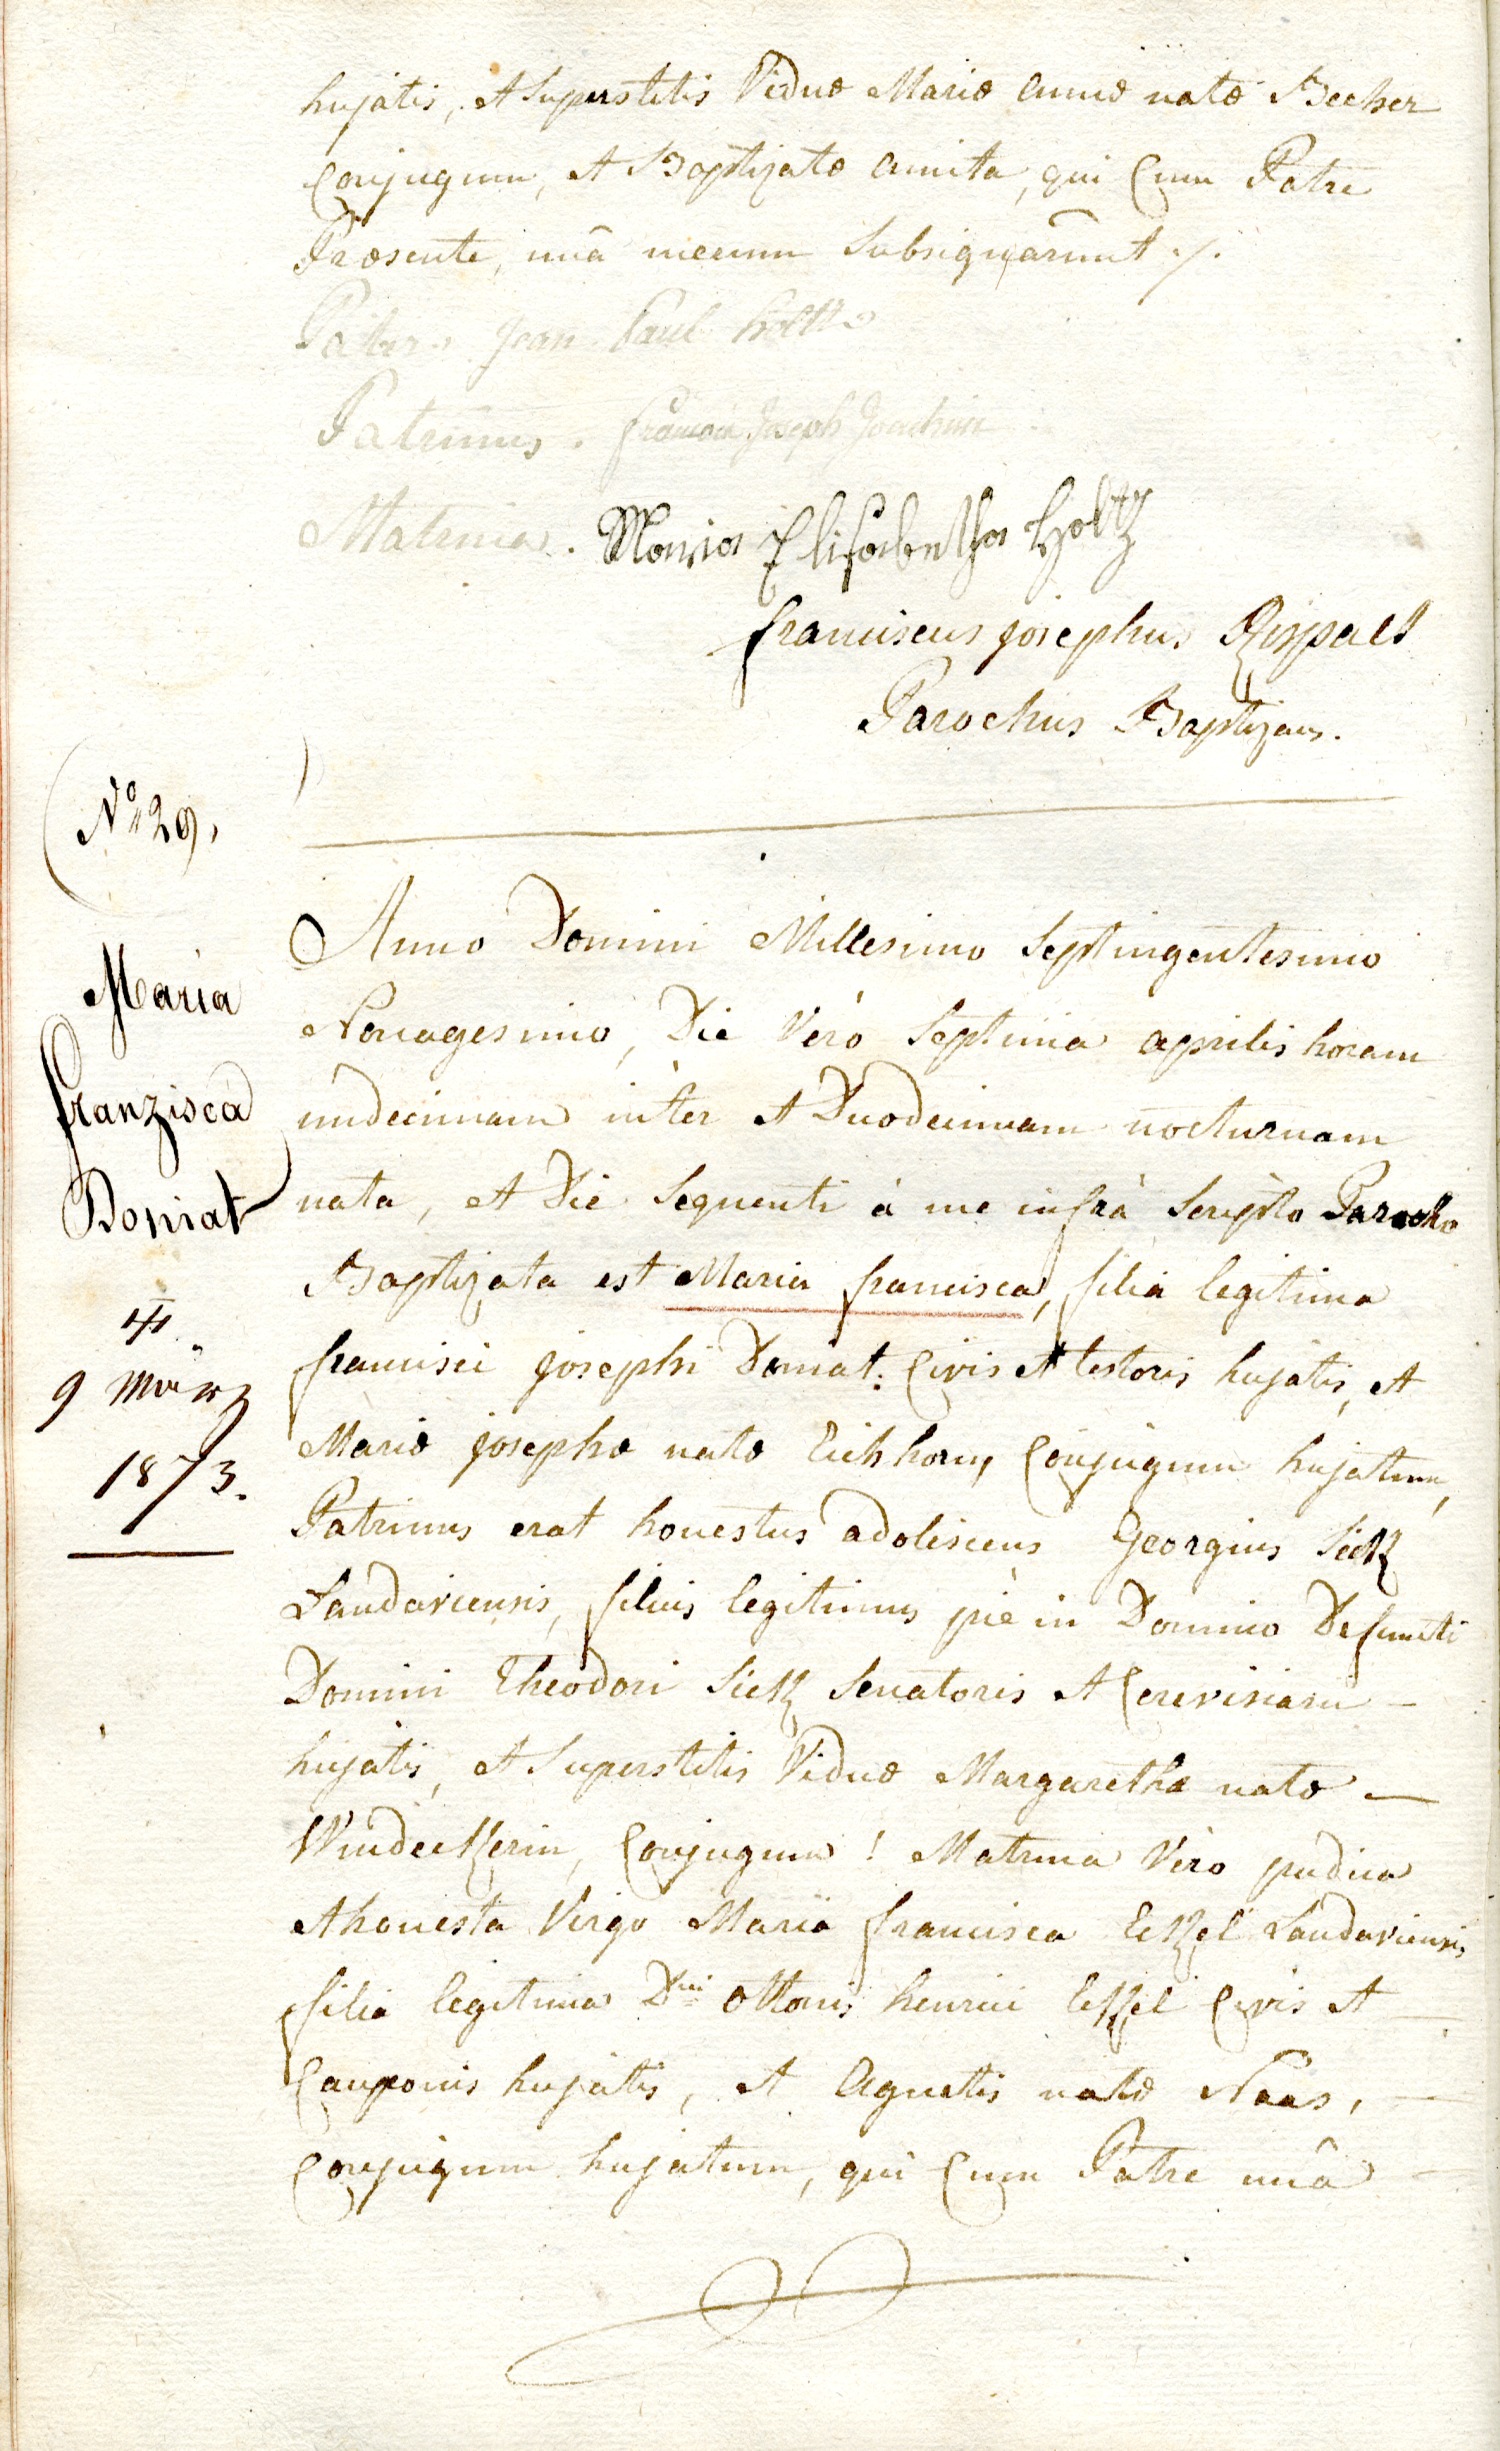 hujatis, et Superstitis Viduæ Mariæ Annæ natæ Becker
Conjugum, et Baptizatæ amita, qui Cum Patre
Præsente, unâ mecum Subsignarunt ./.
Pater. Jean Paul Holtz
Patrinus. françois Joseph Joachim
Matrina. Maria Elisabetha Holtz
franciscus josephus
Parochus Baptizans.
No 29,
Anno Domini Millesimo Septingentesimo
Nonagesimo, Die Verò Septima aprilis horam
undecimam inter et Duodecimam nocturnam
nata, et Die Sequenti à me infrà Scripto Parocho
Baptizata est Maria francisca, filia legitima
francisci josephi Doniat: Civis et textoris hujatis, et
Mariæ josephæ natæ Eichhorn, Conjugum hujatum,
Patrinus erat honestus adolescens Georgius Sick
Landaviensis, filius legitimus piè in Domino Defuncti
Domini Theodori Sick Senatoris et Cerevisiarii –
hujatis, et Superstitis Viduæ Margarethæ natæ –
Windeckerin, Conjugum! Matrina Vero pudica
et honesta Virgo Maria francisca Etzel Landaviensis,
filia legitima Dni Ottonis henrici Etzel Civis et –
Cauponis hujatis, et Agnetis natæ Naas, –
Conjugum hujatum, qui Cum Patre unâ –
Maria
franzisca
Doniat
9 März
1873.